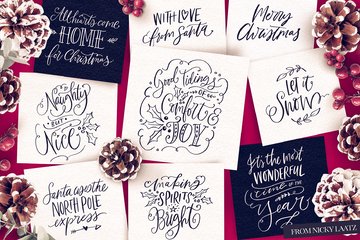 All hearts come
HOME
for Christmas
WITH LOVE
from Santa
Merry
Christmas
Naughty
BUT
Nice
Good tidings
OF
Comfort
&
JOY
Let it
Snow
Santa use the
NORTH POLE
express
making
SPIRITS
Bright
It's the most
WONDERFUL
time of the
Year
FROM NICKY LAATZ